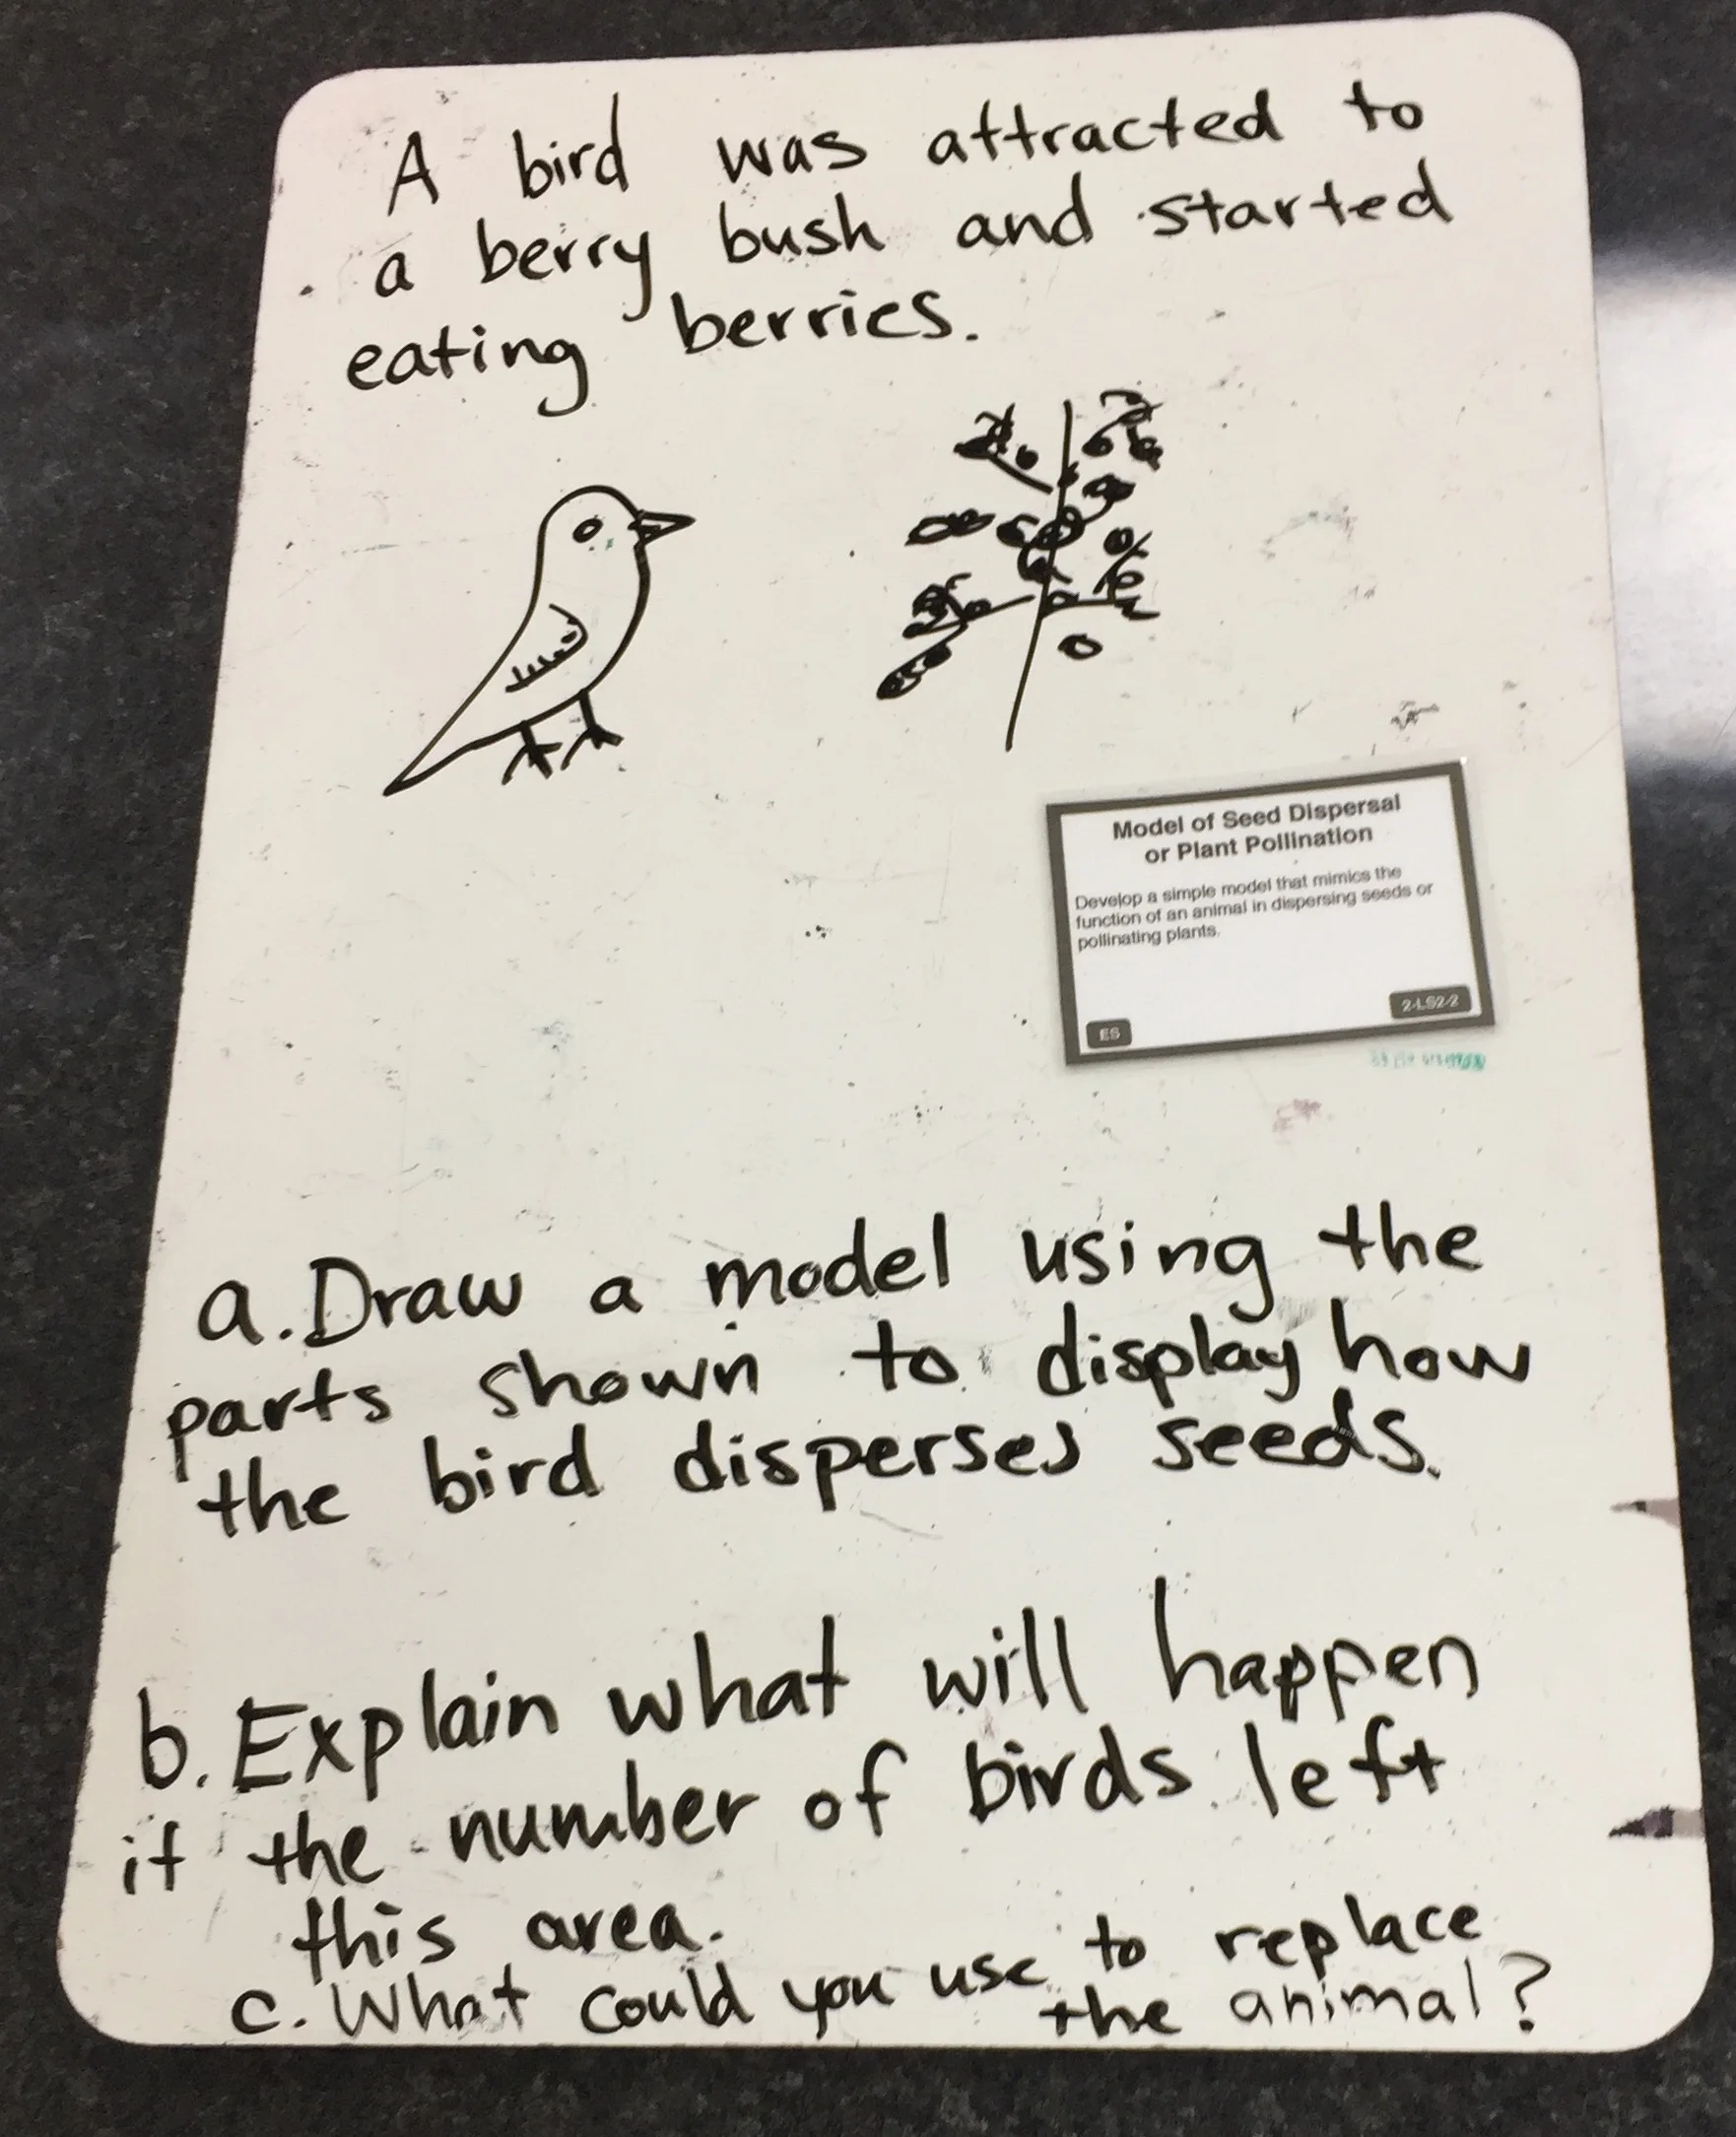 A bird was attracted to
a berry bush and started
eating berries.
Model of Seed Dispersal
or Plant Pollination
Develop a simple model that mimics the
function of an animal in dispersing seeds or
pollinating plants.
2-LS2-2
ES
a. Draw a model using the
parts shown to display how
the bird disperses seeds.
b. Explain what will happen
if the number of birds left
this area.
c. What could you use to replace
the animal?